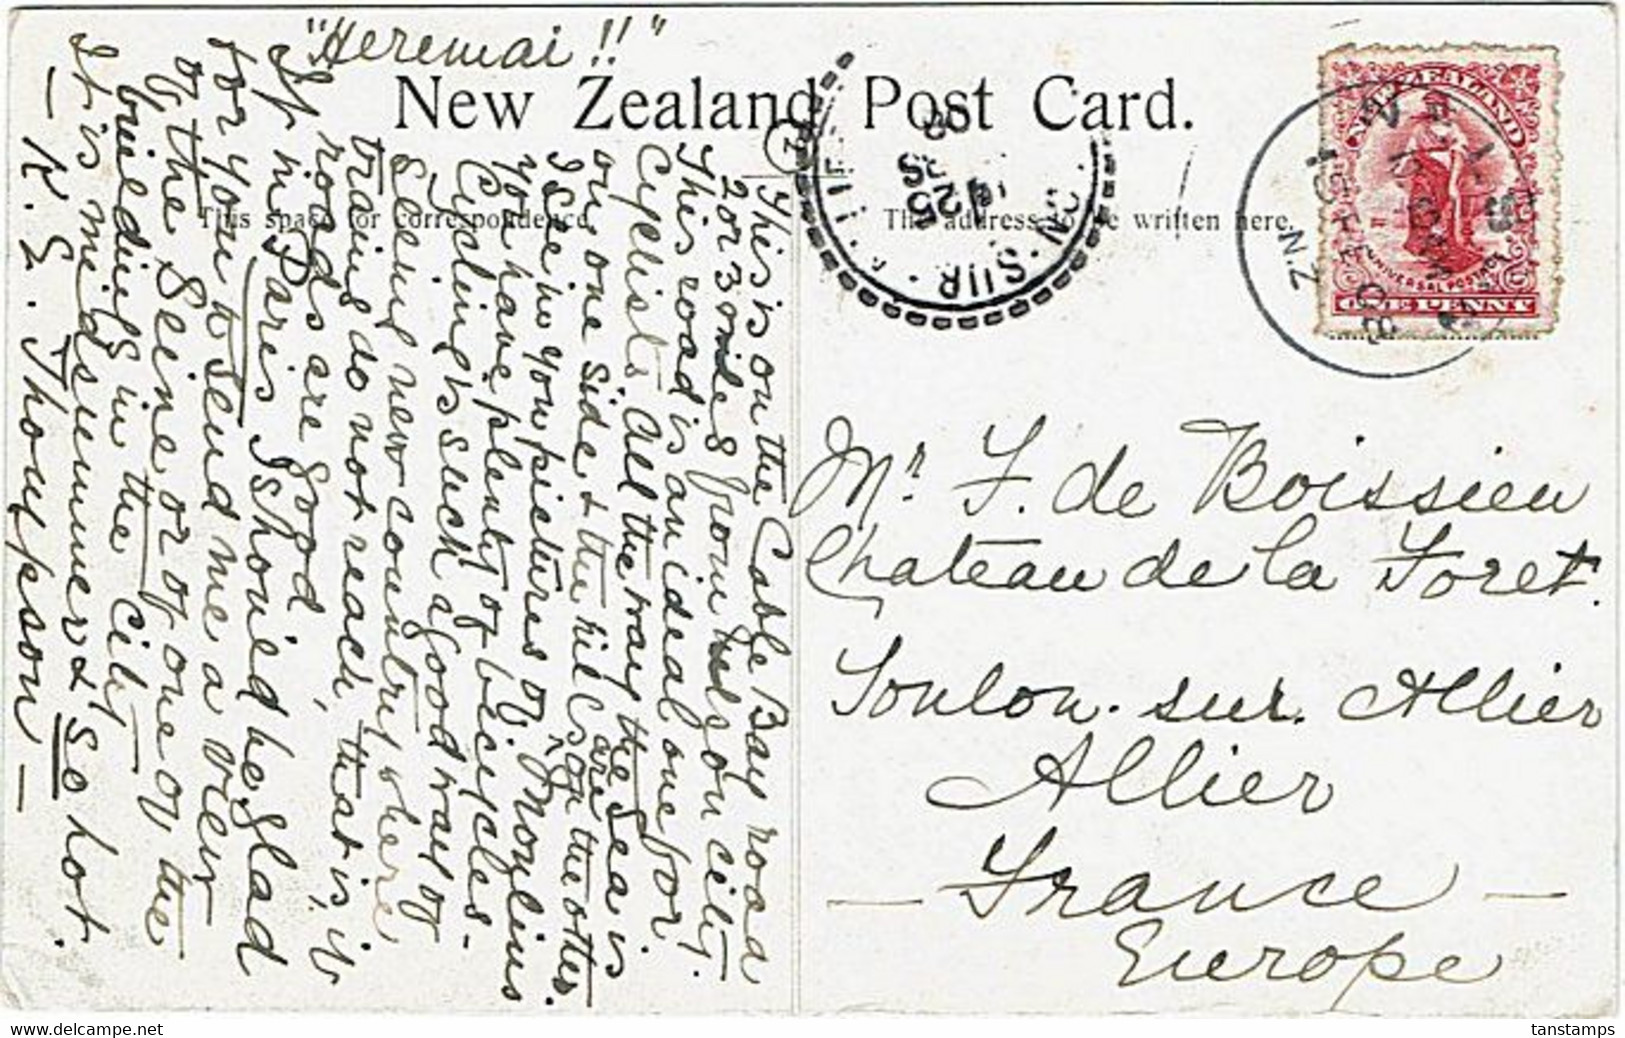 "Heremai!!"
New Zealand Post Card.
This space for correspondence.
The address to be written here.
This is on the Cable Bay road
2 or 3 miles from our city.
This road is an ideal one for
Cyclists All the way the sea is
on one side & the hills are on the other.
I see in your pictures of Moulins
you have plenty of bicycles -
Cycling is such a good way of
seeing new country where
trains do not reach, that is, if
roads are good,
If in Paris I should be glad
for you to send me a view
of the Seine or of one of the
buildings in the City
It is midsummer & so hot.
— K. E. Thompson —
NEW ZEALAND
UNIVERSAL POSTAGE
ONE PENNY
N.Z
08
SUR
25
08
2
Mr F. de Boissieu
Chateau de la Foret.
Toulon. sur. Allier
Allier
— France —
Europe
tanstamps